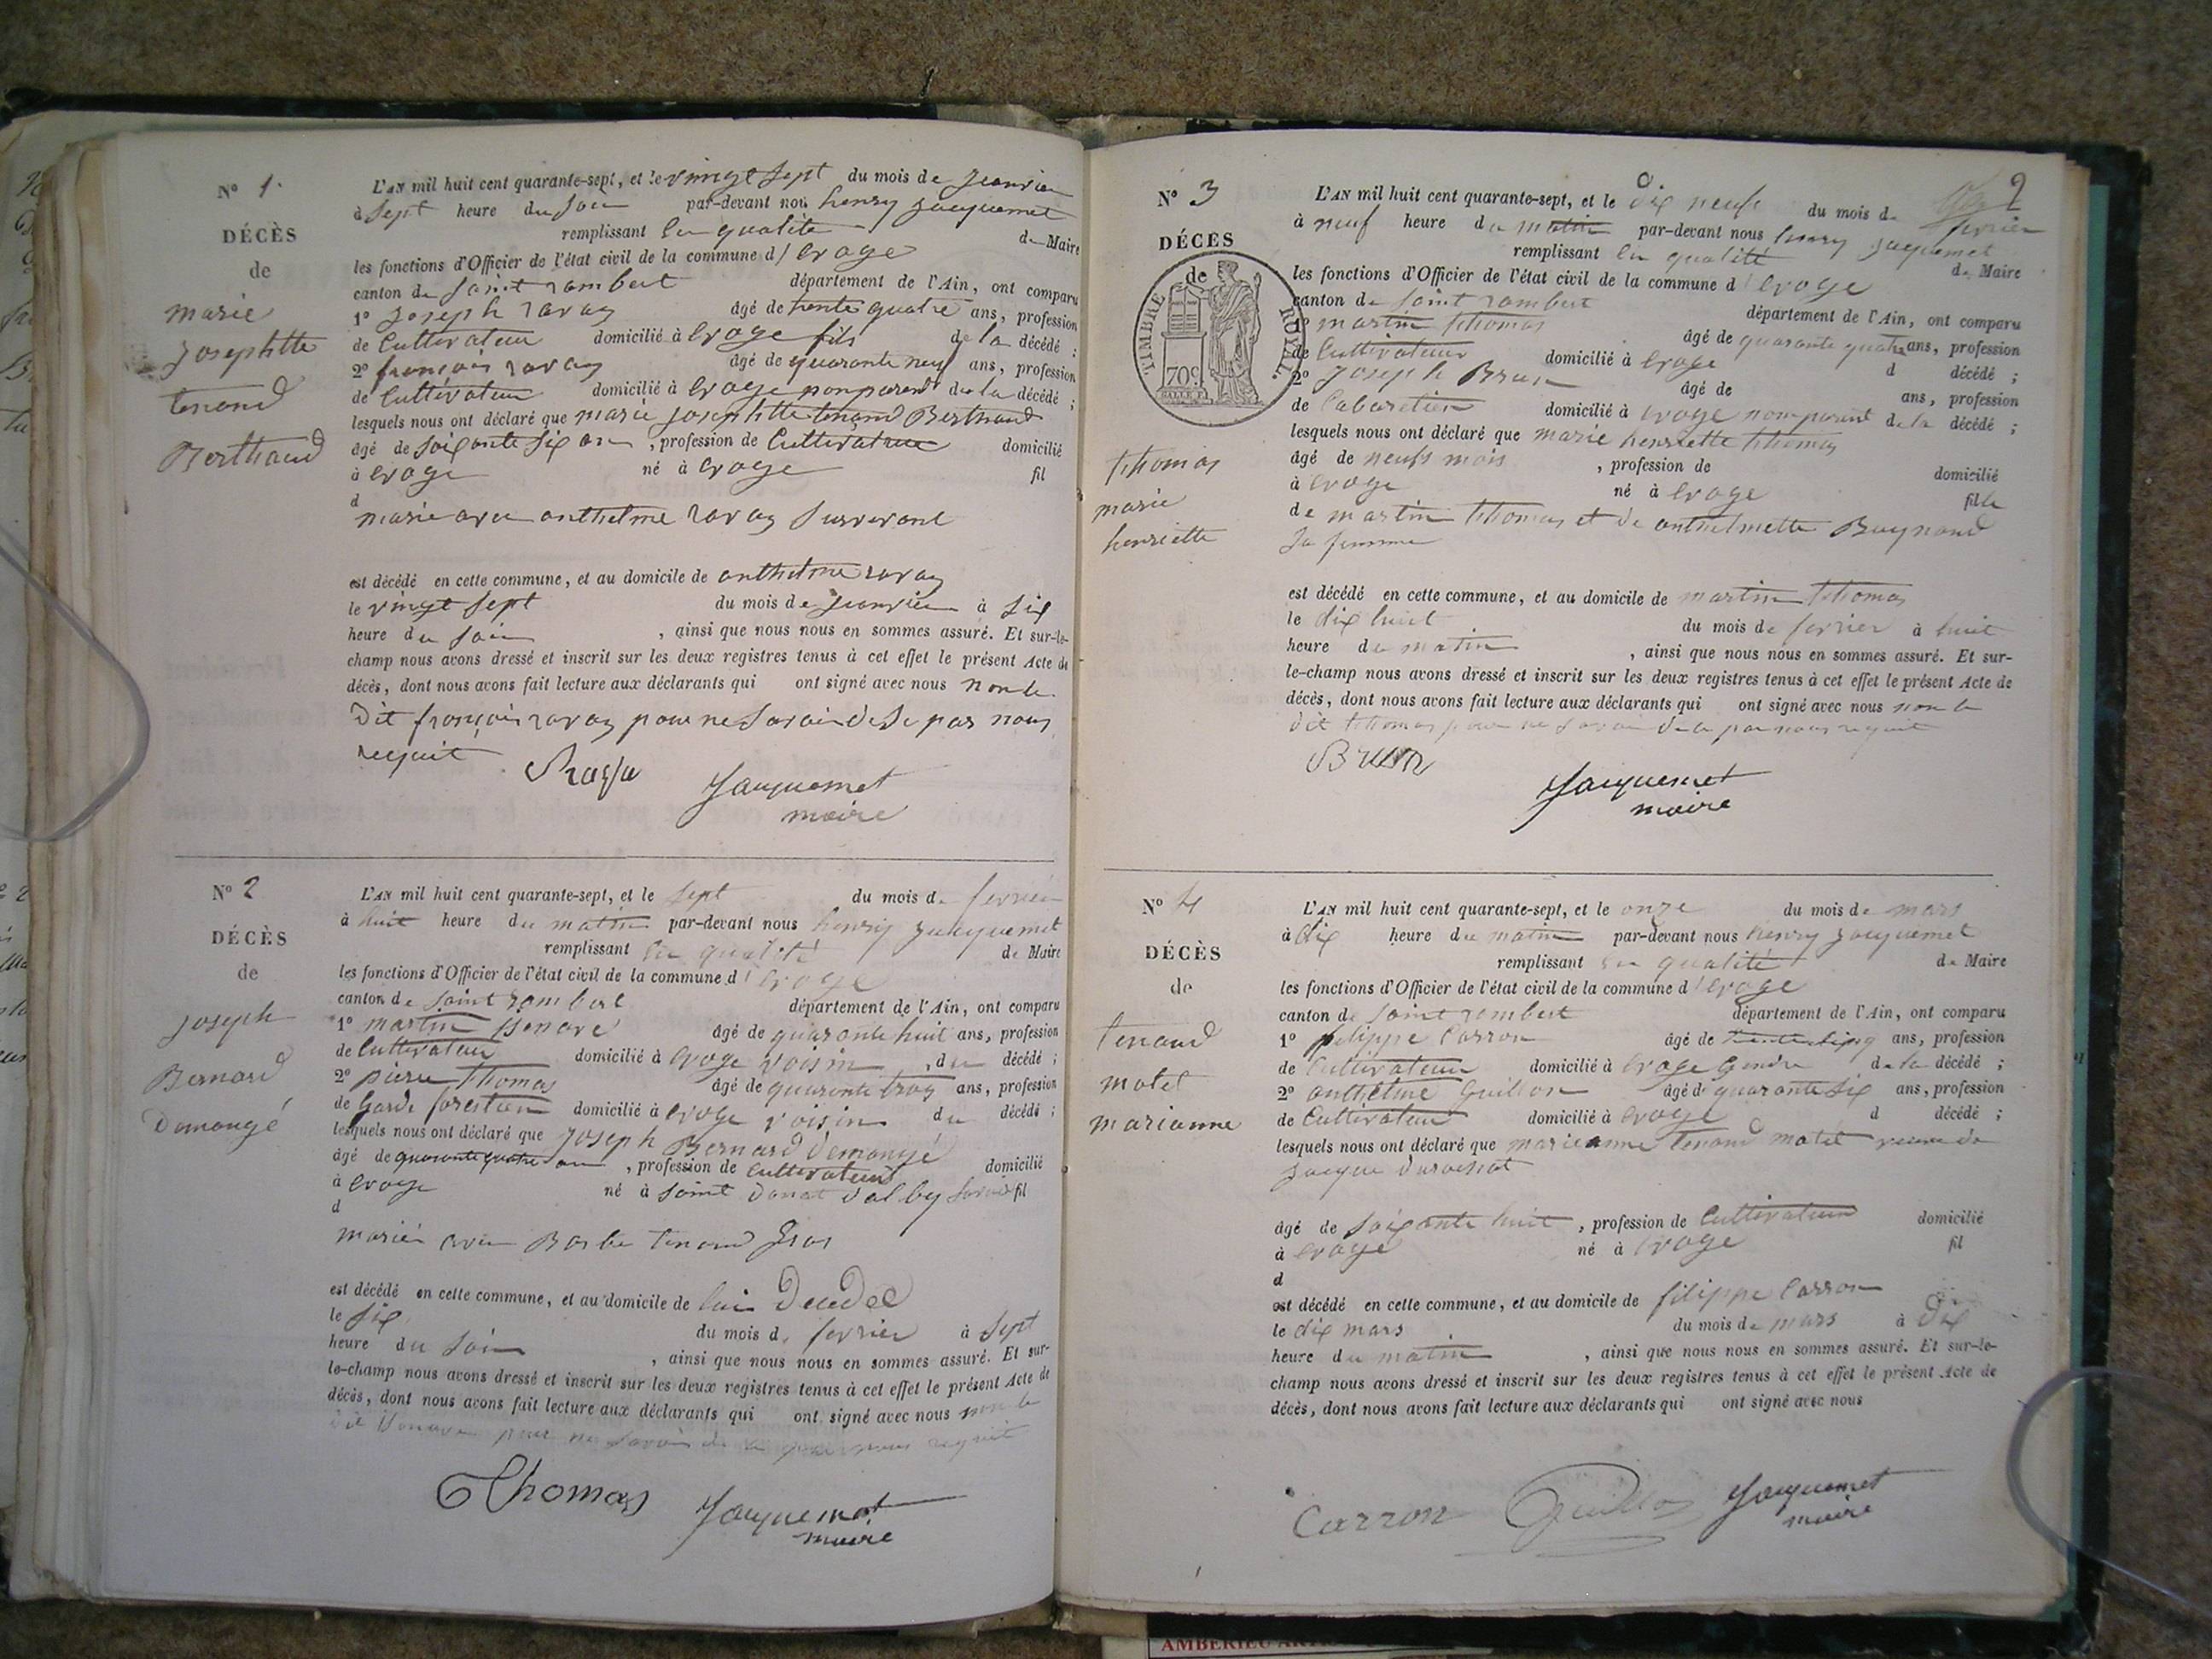 N° 1.
DÉCÈS
de
marie
Josephtte
tenand
Berthand
L'AN mil huit cent quarante-sept, et le vingt sept du mois de Janvier
à sept heure du soir par-devant nous henry Jacquemet
remplissant en qualité de Maire
les fonctions d'Officier de l'état civil de la commune d' Evoge
canton de saint rambert département de l'Ain, ont comparu
1° Joseph ravaz âgé de trente quatre ans, profession
de Cultivateur domicilié à Evoge fils de la décédé ;
2° françois ravaz âgé de quarante neuf ans, profession
de Cultivateur domicilié à Evoge nonparent de la décédé ;
lesquels nous ont déclaré que marie Josephtte tenand Berthand
âgé de soixante six an , profession de Cultivatrice domicilié
à Evoge né à Evoge fil
d
marie avec anthelme ravaz survivant
est décédé en cette commune, et au domicile de anthelme ravaz
le vingt sept du mois de Janvier à six
heure du soir , ainsi que nous nous en sommes assuré. Et sur-le-
champ nous avons dressé et inscrit sur les deux registres tenus à cet effet le présent Acte de
décès, dont nous avons fait lecture aux déclarants qui ont signé avec nous non le
dit françois ravaz pour ne savoir de ce par nous
requit
Jacquemet
maire
N° 2
DÉCÈS
de
Joseph
Bernard
Demongé
L'AN mil huit cent quarante-sept, et le sept du mois de fevrier
à huit heure du matin par-devant nous henry Jacquemet
remplissant en qualité de Maire
les fonctions d'Officier de l'état civil de la commune d' Evoge
canton de saint rambert département de l'Ain, ont comparu
1° martin âgé de quarante huit ans, profession
de Cultivateur domicilié à Evoge voisin , du décédé ;
2° pierre thomas âgé de quarante troy ans, profession
de Garde forestier domicilié à Evoge voisin du décédé ;
lesquels nous ont déclaré que Joseph Bernard Demongé
âgé de quarante quatre an , profession de Cultivateur domicilié
à Evoge né à saint donat dalby savoie fil
d
mariér avec Barbe tenand Gros
est décédé en cette commune, et au domicile de lui Decedée
le six du mois de fevrier à sept
heure du soir , ainsi que nous nous en sommes assuré. Et sur-
le-champ nous avons dressé et inscrit sur les deux registres tenus à cet effet le présent Acte de
décès, dont nous avons fait lecture aux déclarants qui ont signé avec nous non le
dit pour ne savoir de ce par nous requit
Thomas Jacquemet
maire
2
N° 3
DÉCÈS
de
TIMBRE ROYAL.
70c
thomas
marie
henriette
L'AN mil huit cent quarante-sept, et le dix neuf du mois de fevrier
à neuf heure du matin par-devant nous henry Jacquemet
remplissant en qualité de Maire
les fonctions d'Officier de l'état civil de la commune d' Evoge
canton de saint rambert département de l'Ain, ont comparu
1° martin thomas âgé de quarante quatre ans, profession
de Cultivateur domicilié à Evoge d décédé ;
2° Joseph Brun âgé de ans, profession
de Cabaretier domicilié à Evoge nonparent de la décédé ;
lesquels nous ont déclaré que marie henriette thomas
âgé de neufs mois , profession de domicilié
à Evoge né à Evoge fille
de martin thomas et de anthelmette Buynand
sa femme
est décédé en cette commune, et au domicile de martin thomas
le dix huit du mois de fevrier à huit
heure du matin , ainsi que nous nous en sommes assuré. Et sur-
le-champ nous avons dressé et inscrit sur les deux registres tenus à cet effet le présent Acte de
décès, dont nous avons fait lecture aux déclarants qui ont signé avec nous non le
dit thomas pour ne savoir de ce par nous requit
Brun
Jacquemet
maire
N° 4
DÉCÈS
de
tenand
matel
marianne
L'AN mil huit cent quarante-sept, et le onze du mois de mars
à dix heure du matin par-devant nous henry Jacquemet
remplissant en qualité de Maire
les fonctions d'Officier de l'état civil de la commune d' Evoge
canton de saint rambert département de l'Ain, ont comparu
1° filippe Carron âgé de trente cinq ans, profession
de Cultivateur domicilié à Evoge Gendre de la décédé ;
2° anthelme Guillon âgé de quarante six ans, profession
de Cultivateur domicilié à Evoge d décédé ;
lesquels nous ont déclaré que marieanne tenand matel veuve de
Jacque
âgé de soixante huit , profession de Cultivateur domicilié
à Evoge né à Evoge fil
d
est décédé en cette commune, et au domicile de filippe Carron
le dix mars du mois de mars à dix
heure du matin , ainsi que nous nous en sommes assuré. Et sur-le-
champ nous avons dressé et inscrit sur les deux registres tenus à cet effet le présent Acte de
décès, dont nous avons fait lecture aux déclarants qui ont signé avec nous
Carron Guillon Jacquemet
maire